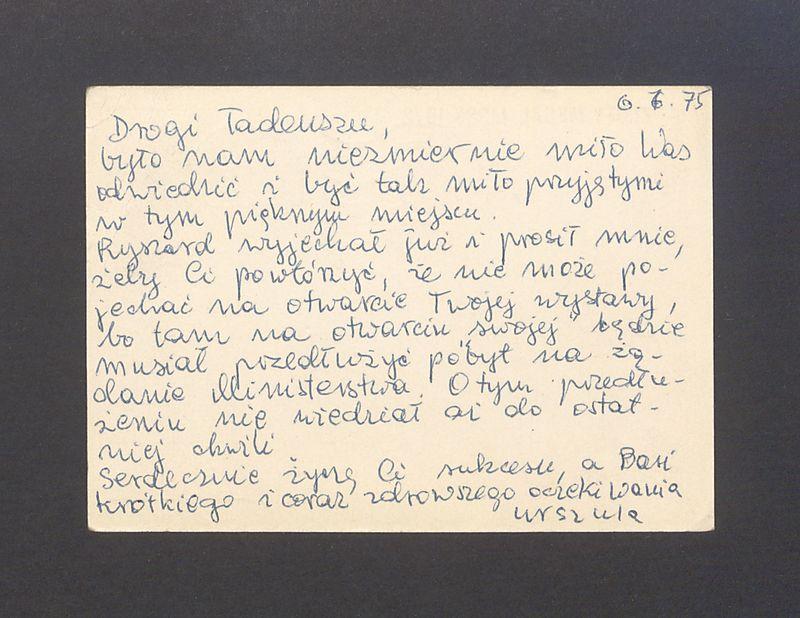 6.6.75
Drogi Tadeuszu,
było nam niezmiernie miło Was
odwiedzić i być tak miło przyjętymi
w tym pięknym miejscu.
Ryszard wyjechał już i prosił mnie,
żeby Ci powtórzyć, że nie może po-
jechać na otwarcie Twojej wystawy,
bo tam na otwarciu „swojej" będzie
musiał przedłużyć pobyt na żą-
danie Ministerstwa. O tym przedłu-
żeniu nie wiedział aż do ostat-
niej chwili
Serdecznie życzę Ci sukcesu, a Basi
krótkiego i coraz zdrowszego oczekiwania
Urszula